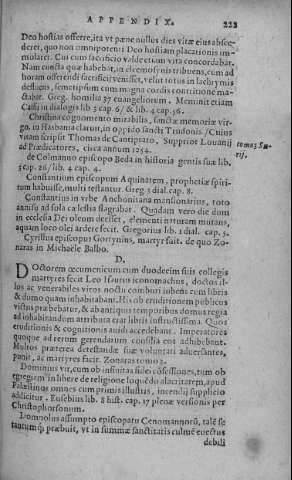 APPENDIX. 223
Deo hostias offerre, ita vt pæne nullus dies vitæ eius absce-
deret, quo non omnipotenti Deo hostiam placationis im-
molaret. Cui cum sacrificio valde etiam vita concordabat.
Nam cuncta quæ habebat, in eleemosynis tribuens, cum ad
horam offerendi sacrificij venisset, velut totus in lachrymis
defluens, semetipsum cum magna cordis contritione ma-
ctabat. Greg. homilia 37 euangeliorum. Meminit etiam
Cassij in dialogis lib 3 cap. 6 / & lib. 4 cap. 56.
Christina cognomento mirabilis, sanctæ memoriæ virgo,
in Hasbania claruit, in oppido sancti Trudonis. / Cuius
vitam scripsit Thomas de Cantiprato, Supprior Louanij tomo 3 Su-
ad Prædicatores, circa annum 1254. rij.
de Colmanno episcopo Beda in historia gentis suæ lib.
3 cap. 26 / lib. 4 cap. 4.
Constantium episcopum Aquinatem, prophetiæ spiri-
tum habuisse, multi testantur. Greg 3 dial. cap. 8.
Constantius in vrbe Anchonitana mansionarius, toto
annisu ad sola cælestia flagrabat. Quadam vero die dum
in ecclesia Dei oleum deesset, elementi naturam mutans,
aquam loco olei ardere fecit. Gregorius lib. 1 dial. cap. 5.
Cyrillus episcopus Gortynius, martyr fuit. de quo Zo-
naras in Michaële Balbo.
D.
DOctorem œcumenicum cum duodecim suis collegis
martyres fecit Leo Isaurus iconomachus, doctos il-
los ac venerabiles viros noctu comburi iubens cum libris
& domo quam inhabitabant. His ob eruditionem publicus
victus præbebatur, & ab antiquis temporibus domus regia
ad inhabitandom attributa erat libris instructissima. Quos
eruditionis & cognitionis auidi accedebant. Imperatores
quoque ad rerum gerendarum consilia eos adhibebant.
Multos præterea detestandæ suæ voluntati aduersantes,
punit, ac martyres facit. Zonaras tomo 3.
Dominus vir, cum ob insinitas fidei cõfessiones, tum ob
egregiam in libere de religione loquẽdo alacritatem, apud
Palæstinos omnes cum primis illustris, incendij supplicio
addicitur. Eusebius lib. 8 hist. cap. 17 plenæ versionis per
Christophorsonum.
Domnolus assumpto episcopatu Cenomannorũ, talẽ se
tantumq; præbuit, vt in summæ sanctitatis culmẽ euectus
debili